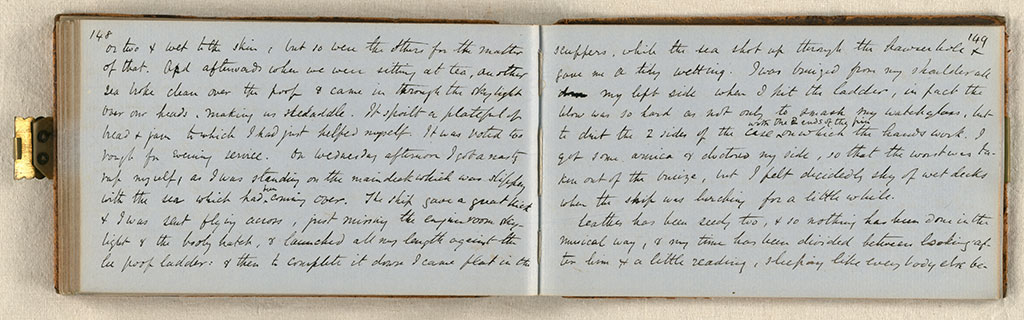 148
or two & wet to the skin, but so were the others for the matter
of that. And afterwards when we were sitting at tea, another
sea broke clean over the poop & came in through the skylight
over our heads, making us skedaddle. It spoilt a plateful of
bread & jam to which I had just helped myself. It was voted too
rough for evening service. On Wednesday afternoon I got a nasty
rap myself, as I was standing on the maindeck which was slippery
with the sea which had been coming over. The ship gave a great kick
& I was sent flying across, just missing the engineroom sky-
light & the booby hatch, & launched all my length against the
lee poop ladder: & then to complete it down I came flat in the
149
scuppers, while the sea shot up through the hawsehole &
gave me a tidy wetting. I was bruized from my shoulder all
down my left side when I hit the ladder, in fact the
blow was so hard as not only to smash my watchglass, but
to dint the 2 sides of the case on which the hands work,
with the 2 ends of the pin
I
got some arnica & doctored my side, so that the worst was ta-
ken out of the bruize, but I felt decidedly shy of wet decks
when the ship was lurching for a little while.
has been seedy too, & so nothing has been done in the
musical way, & my time has been divided between looking af-
ter him & a little reading, sleeping like everybody else be-